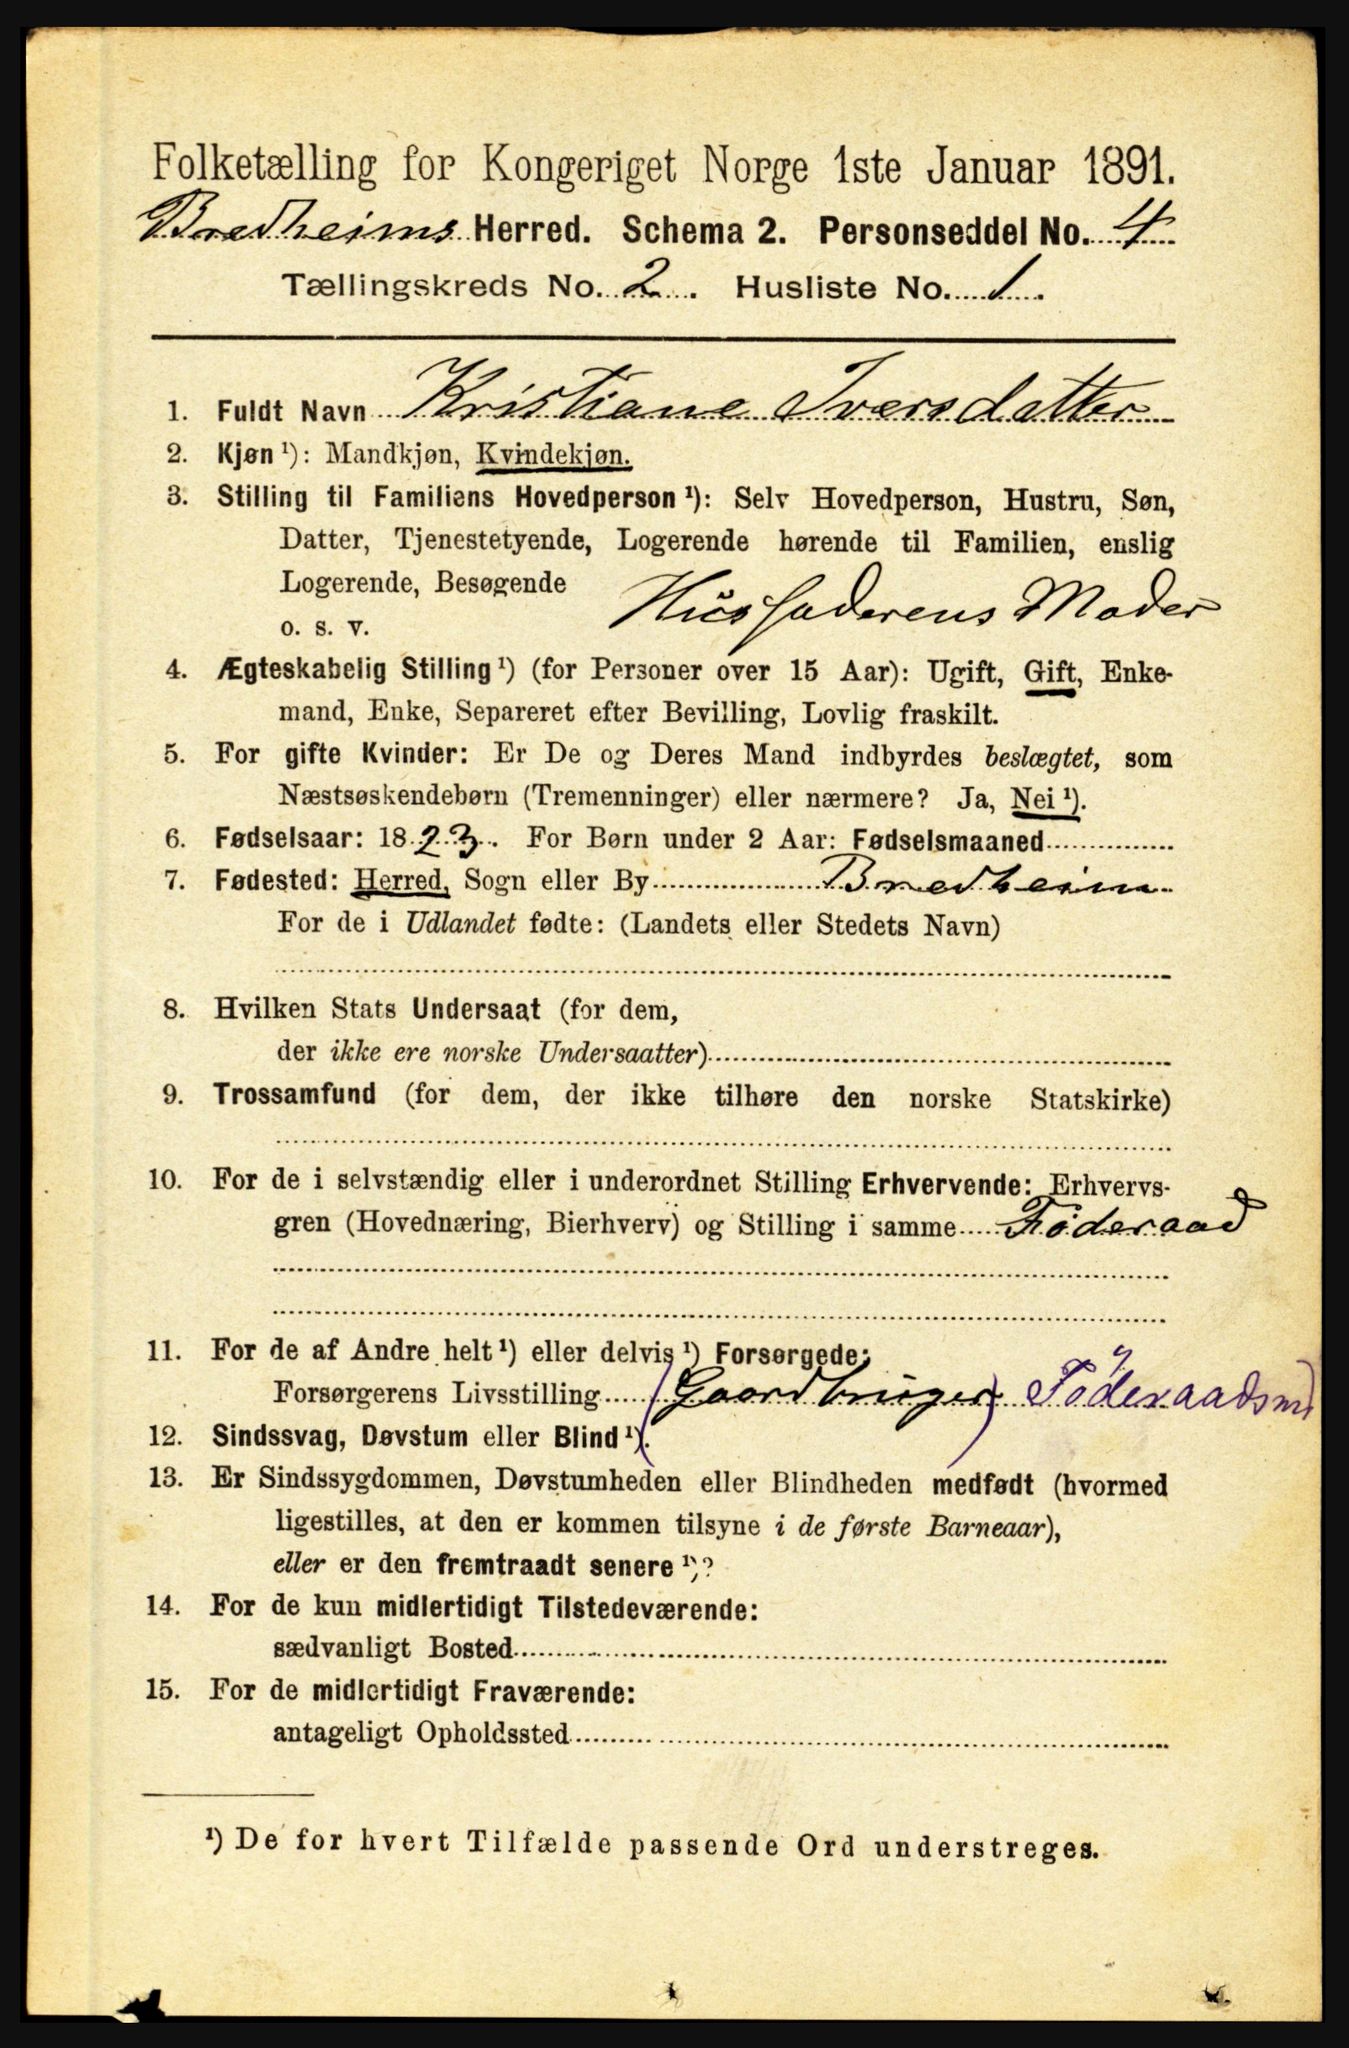 Folketælling for Kongeriget Norge 1ste Januar 1891.
Bredheims Herred. Schema 2. Personseddel No. 4
Tællingskreds No. 2. Husliste No. 1.
1. Fuldt Navn Kristiane Iversdatter
2. Kjøn ¹): Mandkjøn, Kvindekjøn.
3. Stilling til Familiens Hovedperson ¹): Selv Hovedperson, Hustru, Søn,
Datter, Tjenestetyende, Logerende hørende til Familien, enslig
Logerende, Besøgende
o. s. v. Husfaderens Moder
4. Ægteskabelig Stilling ¹) (for Personer over 15 Aar): Ugift, Gift, Enke-
mand, Enke, Separeret efter Bevilling, Lovlig fraskilt.
5. For gifte Kvinder: Er De og Deres Mand indbyrdes beslægtet, som
Næstsøskendebørn (Tremenninger) eller nærmere? Ja, Nei ¹).
6. Fødselsaar: 1823. For Børn under 2 Aar: Fødselsmaaned
7. Fødested: Herred, Sogn eller By Bredheim
For de i Udlandet fødte: (Landets eller Stedets Navn)
8. Hvilken Stats Undersaat (for dem,
der ikke ere norske Undersaatter)
9. Trossamfund (for dem, der ikke tilhøre den norske Statskirke)
10. For de i selvstændig eller i underordnet Stilling Erhvervende: Erhvervs-
gren (Hovednæring, Bierhverv) og Stilling i samme Føderaad
11. For de af Andre helt ¹) eller delvis ¹) Forsørgede:
Forsørgerens Livsstilling (Gaardbruger) Føderaadsm
12. Sindssvag, Døvstum eller Blind ¹).
13. Er Sindssygdommen, Døvstumheden eller Blindheden medfødt (hvormed
ligestilles, at den er kommen tilsyne i de første Barneaar),
eller er den fremtraadt senere ¹)?
14. For de kun midlertidigt Tilstedeværende:
sædvanligt Bosted
15. For de midlertidigt Fraværende:
antageligt Opholdssted
¹) De for hvert Tilfælde passende Ord understreges.